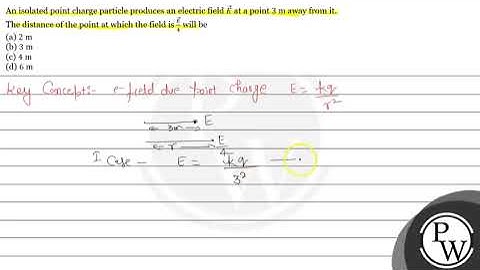 An isolated point charge particle produces an electric field E⃗ at a point 3 m away from it.
The distance of the point at which the field is E⃗/4 will be
(a) 2 m
(b) 3 m
(c) 4 m
(d) 6 m
Key Concept:- e-field due point charge E = kq/r²
3m E
r E/4
I Case - E = kq/3²
PW
PW